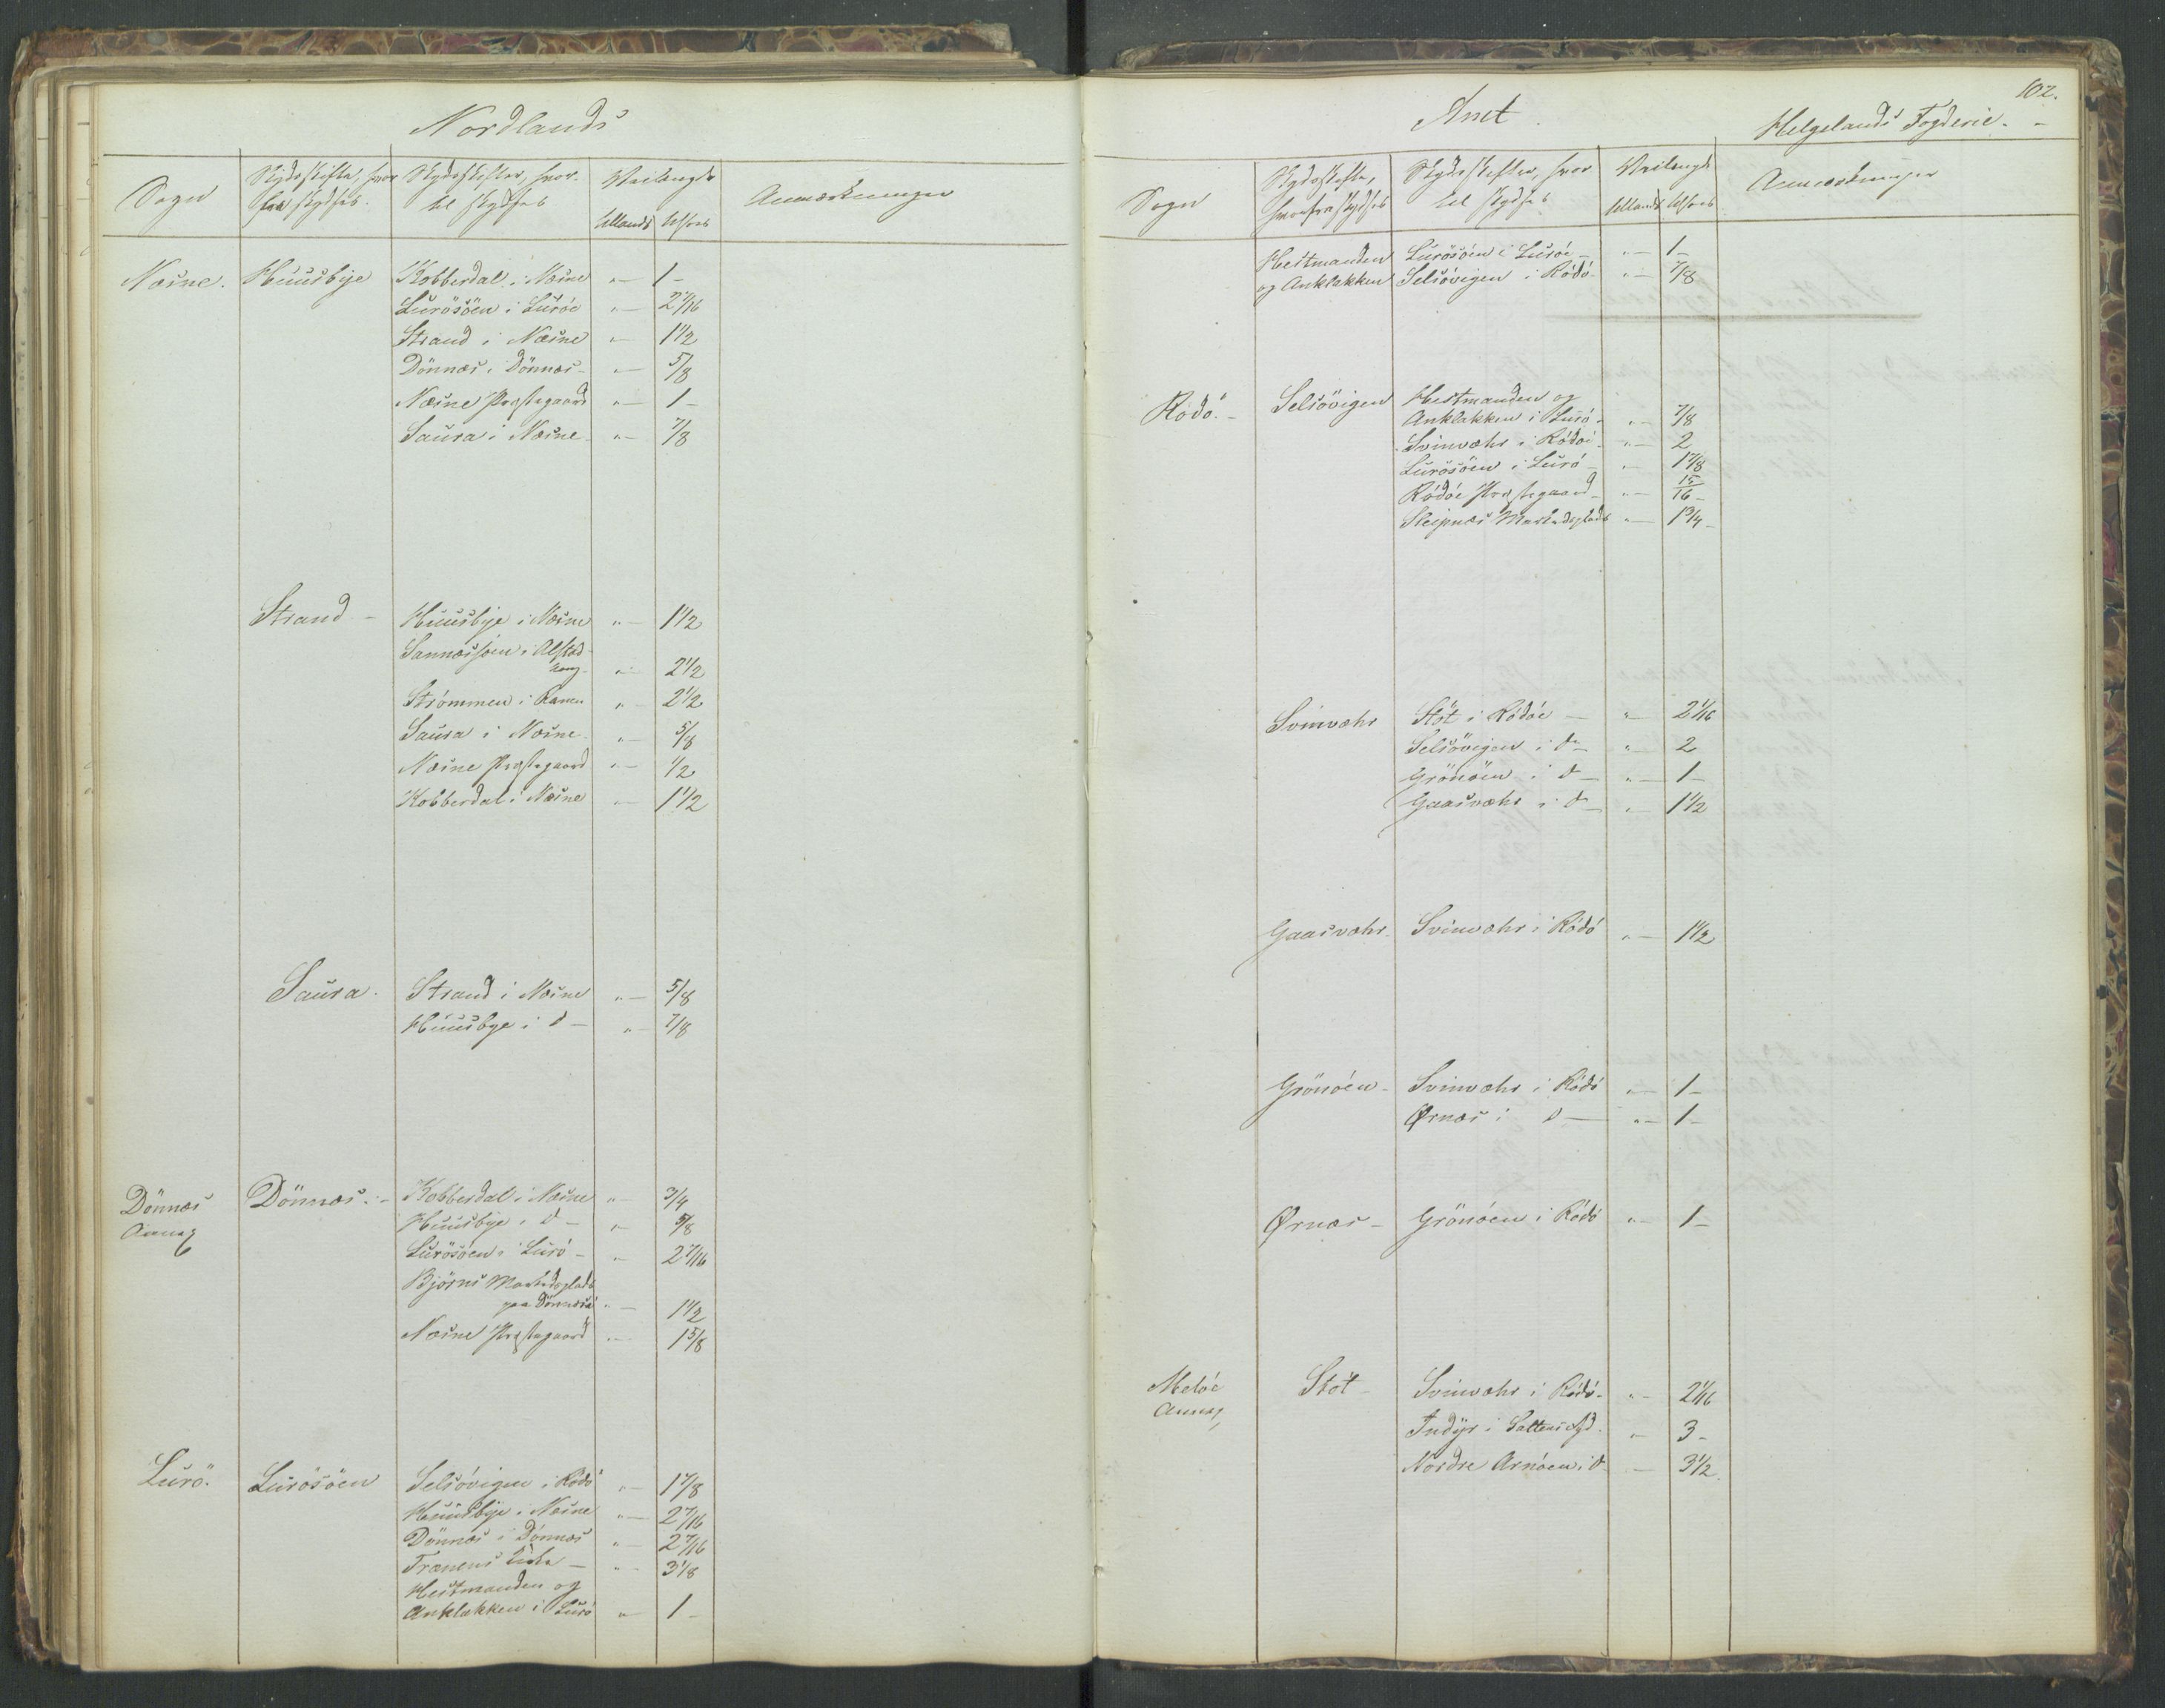 Nordlands
Sogn
Skydsskifte, hvor
fra skydses.
Skydsskifter, hvor-
til skydses
Veilængde
tillands
tilsøes
Anmærkninger
Næsne. Huusbye Kobberdal i Næsne " 1 -
Lurösöen i Luröe " 2 7/16
Strand i Næsne " 1 1/2
Dönnæs i Dönnæs - " 5/8
Næsne Præstegaard " 1 -
Saura i Næsne - " 7/8
Strand - Huusbye i Næsne " 1 1/2
Sannæssöen i Alstad-
haug - " 2 1/2
Strömmen i Ranen " 2 1/2
Saura i Næsne " 5/8
Næsne Præstegaard " 1/2
Kobberdal i Næsne " 1 1/2
Saura - Strand i Næsne " 5/8
Huusbye i d - " 7/8
Dönnæs Dönnæs - Kobberdal i Næsne " 3/4
Annex Huusbye i d - " 5/8
Lurösöen i Lurö - " 2 7/16
Björns Markedsplads
paa Dönnæsö " 1 1/2
Næsne Præstegaard " 1 5/8
Lurö. Lurösöen Selsövigen i Rödö " 1 7/8
Huusbye i Næsne " 2 7/16
Dönnæs i Dönnæs " 2 7/16
Trænens Kirke - " 3 1/8
Hestmanden og
Anklakken i Lurö " 1 -
102.
Amt
Helgelands Fogderie. -
Sogn
Skydsskifte,
hvorfra skydses
Skydsskifter, hvor
til skydses
Veilængde
tillands
tilsøes
Anmærkninger
Hestmanden Lurösöen i Luröe - " 1 -
og Anklakken Selsövigen i Rödö - " 7/8
Rödö. - Selsövigen Hestmanden og
Anklakken i Lurö - " 7/8
Svinvæhr i Rödöe - " 2
Lurösöen i Lurö - " 1 7/8
Rödöe Præstegaard - " 15/16 -
Sleipnæs Markedsplads " 1 3/4 -
Svinvæhr Stöt i Rödöe - " 2 1/16
Selsövigen i d - " 2
Grönöen i d - " 1 -
Gaasvæhr i d - " 1 1/2
Gaasvæhr - Svinvæhr i Rödö " 1 1/2
Grönöen - Svinvæhr i Rödö " 1 -
Ørnæs i d - " 1 -
Ørnæs - Grönöen i Rödö " 1 -
Melöe Stöt - Svinvæhr i Rödö - " 2 1/16
Annex Indyr i Saltens Fgd. " 3 -
Nordre Arnöen i d - 3 1/2